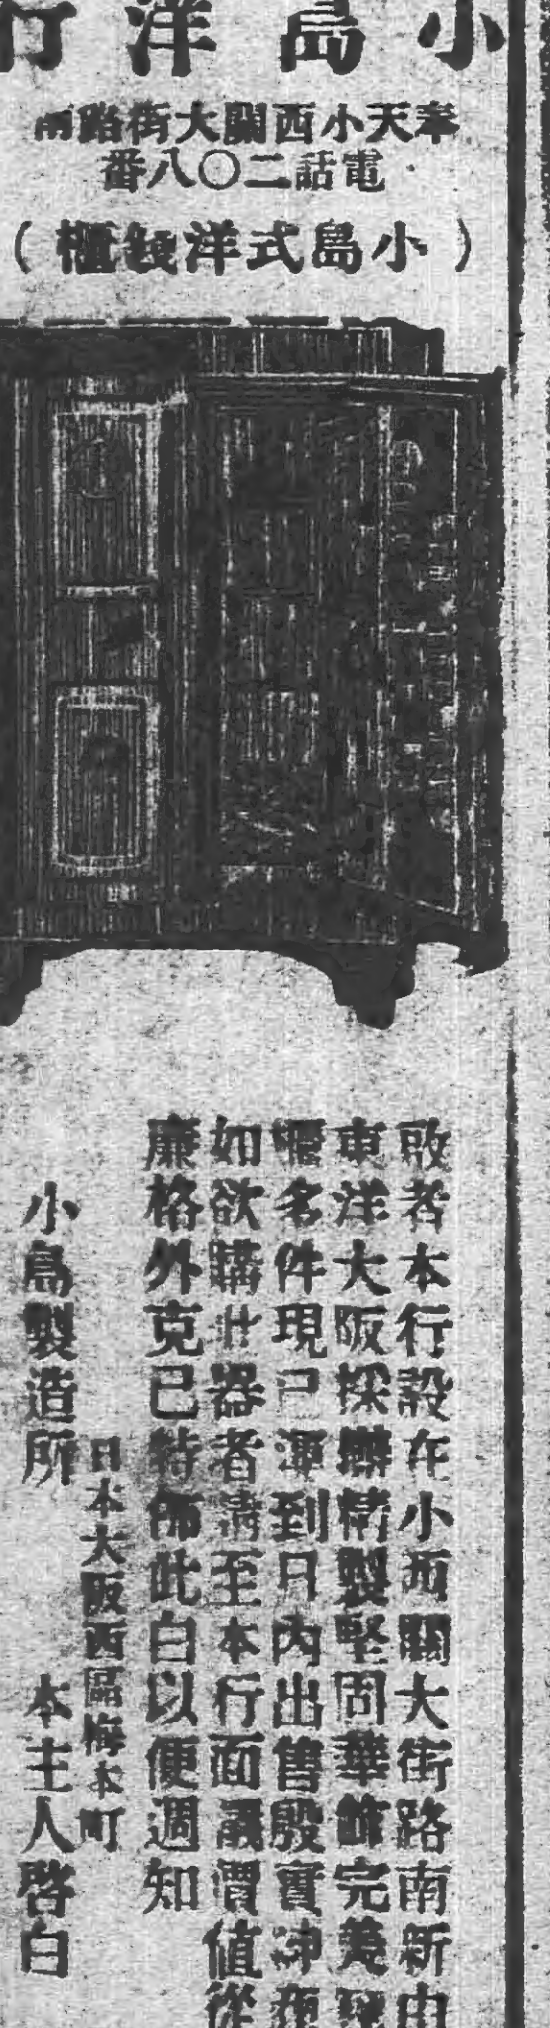 小島洋行
奉天小西關大街路南
電話二〇八番
（小島式洋錢櫃）
敬者本行設在小西關大街路南新由
東洋大阪採辦精製堅固華飾完美
櫃名件現已運到日內出售殷實
如欲購此器者請至本行面議價值從
廉格外克已特佈此白以便週知
日本大阪西區梅本町
小島製造所 本主人啓白